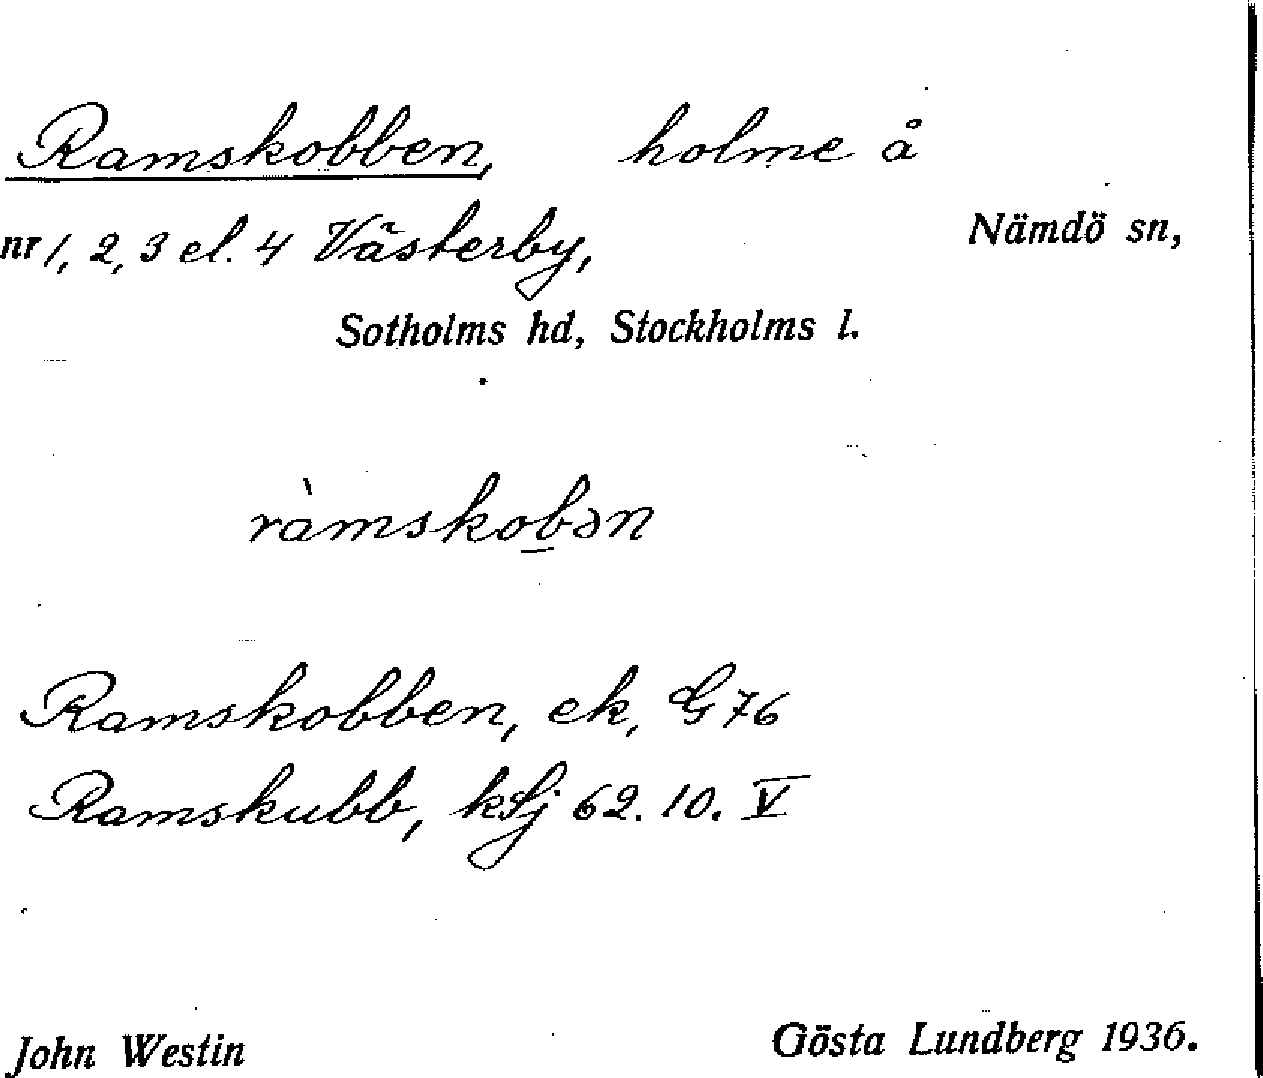 Ramskobben, holme å
nr 1, 2, 3 el. 4 Västerby, Nämdö sn,
Sotholms hd, Stockholms l.
ràmskobən
Ramskobben, ek, G 76
Ramskubb, kSj 62. 10. V
John Westin Gösta Lundberg 1936.